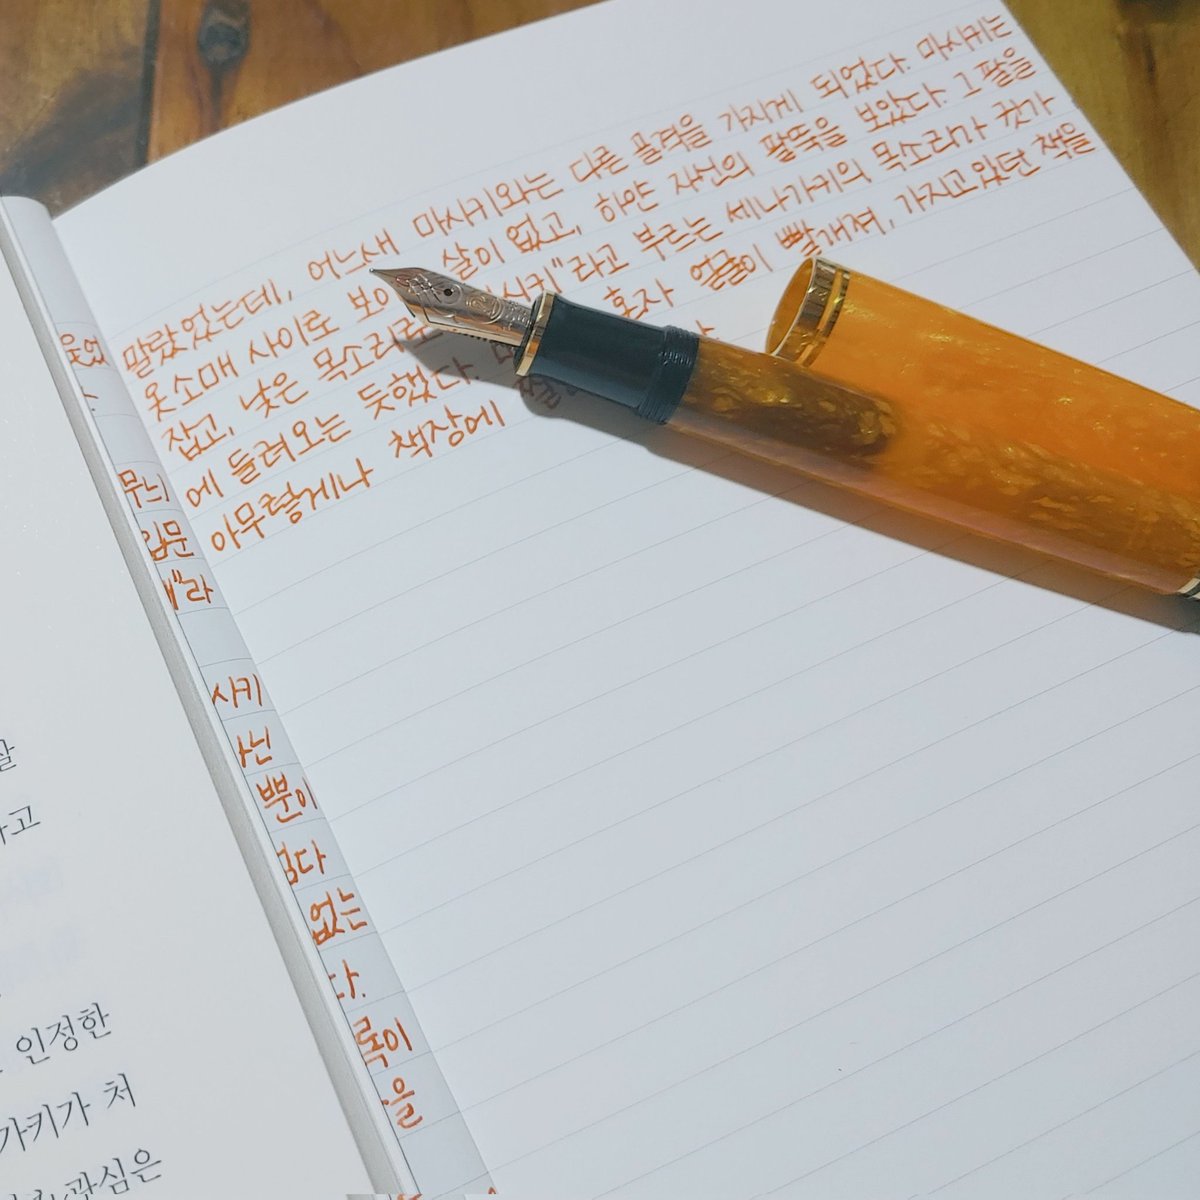 말랐었는데, 어느새 마사키와는 다른 골격을 가지게 되었다. 마사키는
옷소매 사이로 보이 살이 없고, 하얀 자신의 팔뚝을 보았다. 그 팔을
잡고, 낮은 목소리로 사키"라고 부르는 세나가키의 목소리가 귓가
에 들려오는 듯했다. 혼자 얼굴이 빨개져, 가지고 있던 책을
아무렇게나 책장에
무늬
입문
"라
사키
뿐이
없는
다.
록이
을
고
인정한
가키가 처
관심은